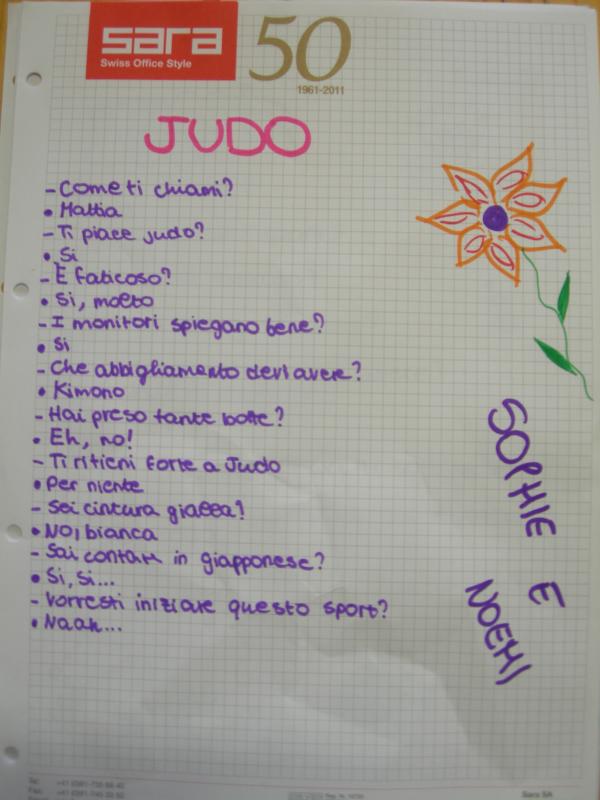 sara
Swiss Office Style
50
1961-2011
JUDO
- Come ti chiami?
• Mattia
- Ti piace judo?
• Si
- È faticoso?
• Si, molto
- I monitori spiegano bene?
• Si
- Che abbigliamento devi avere?
• Kimono
- Hai preso tante botte?
• Eh, no!
- Ti ritieni forte a Judo
• Per niente
- Sei cintura gialla?
• No, bianca
- Sai contare in giapponese?
• Si, si...
- Vorresti iniziare questo sport?
• Naah...
SOPHIE E
NOEMI
Sara SA